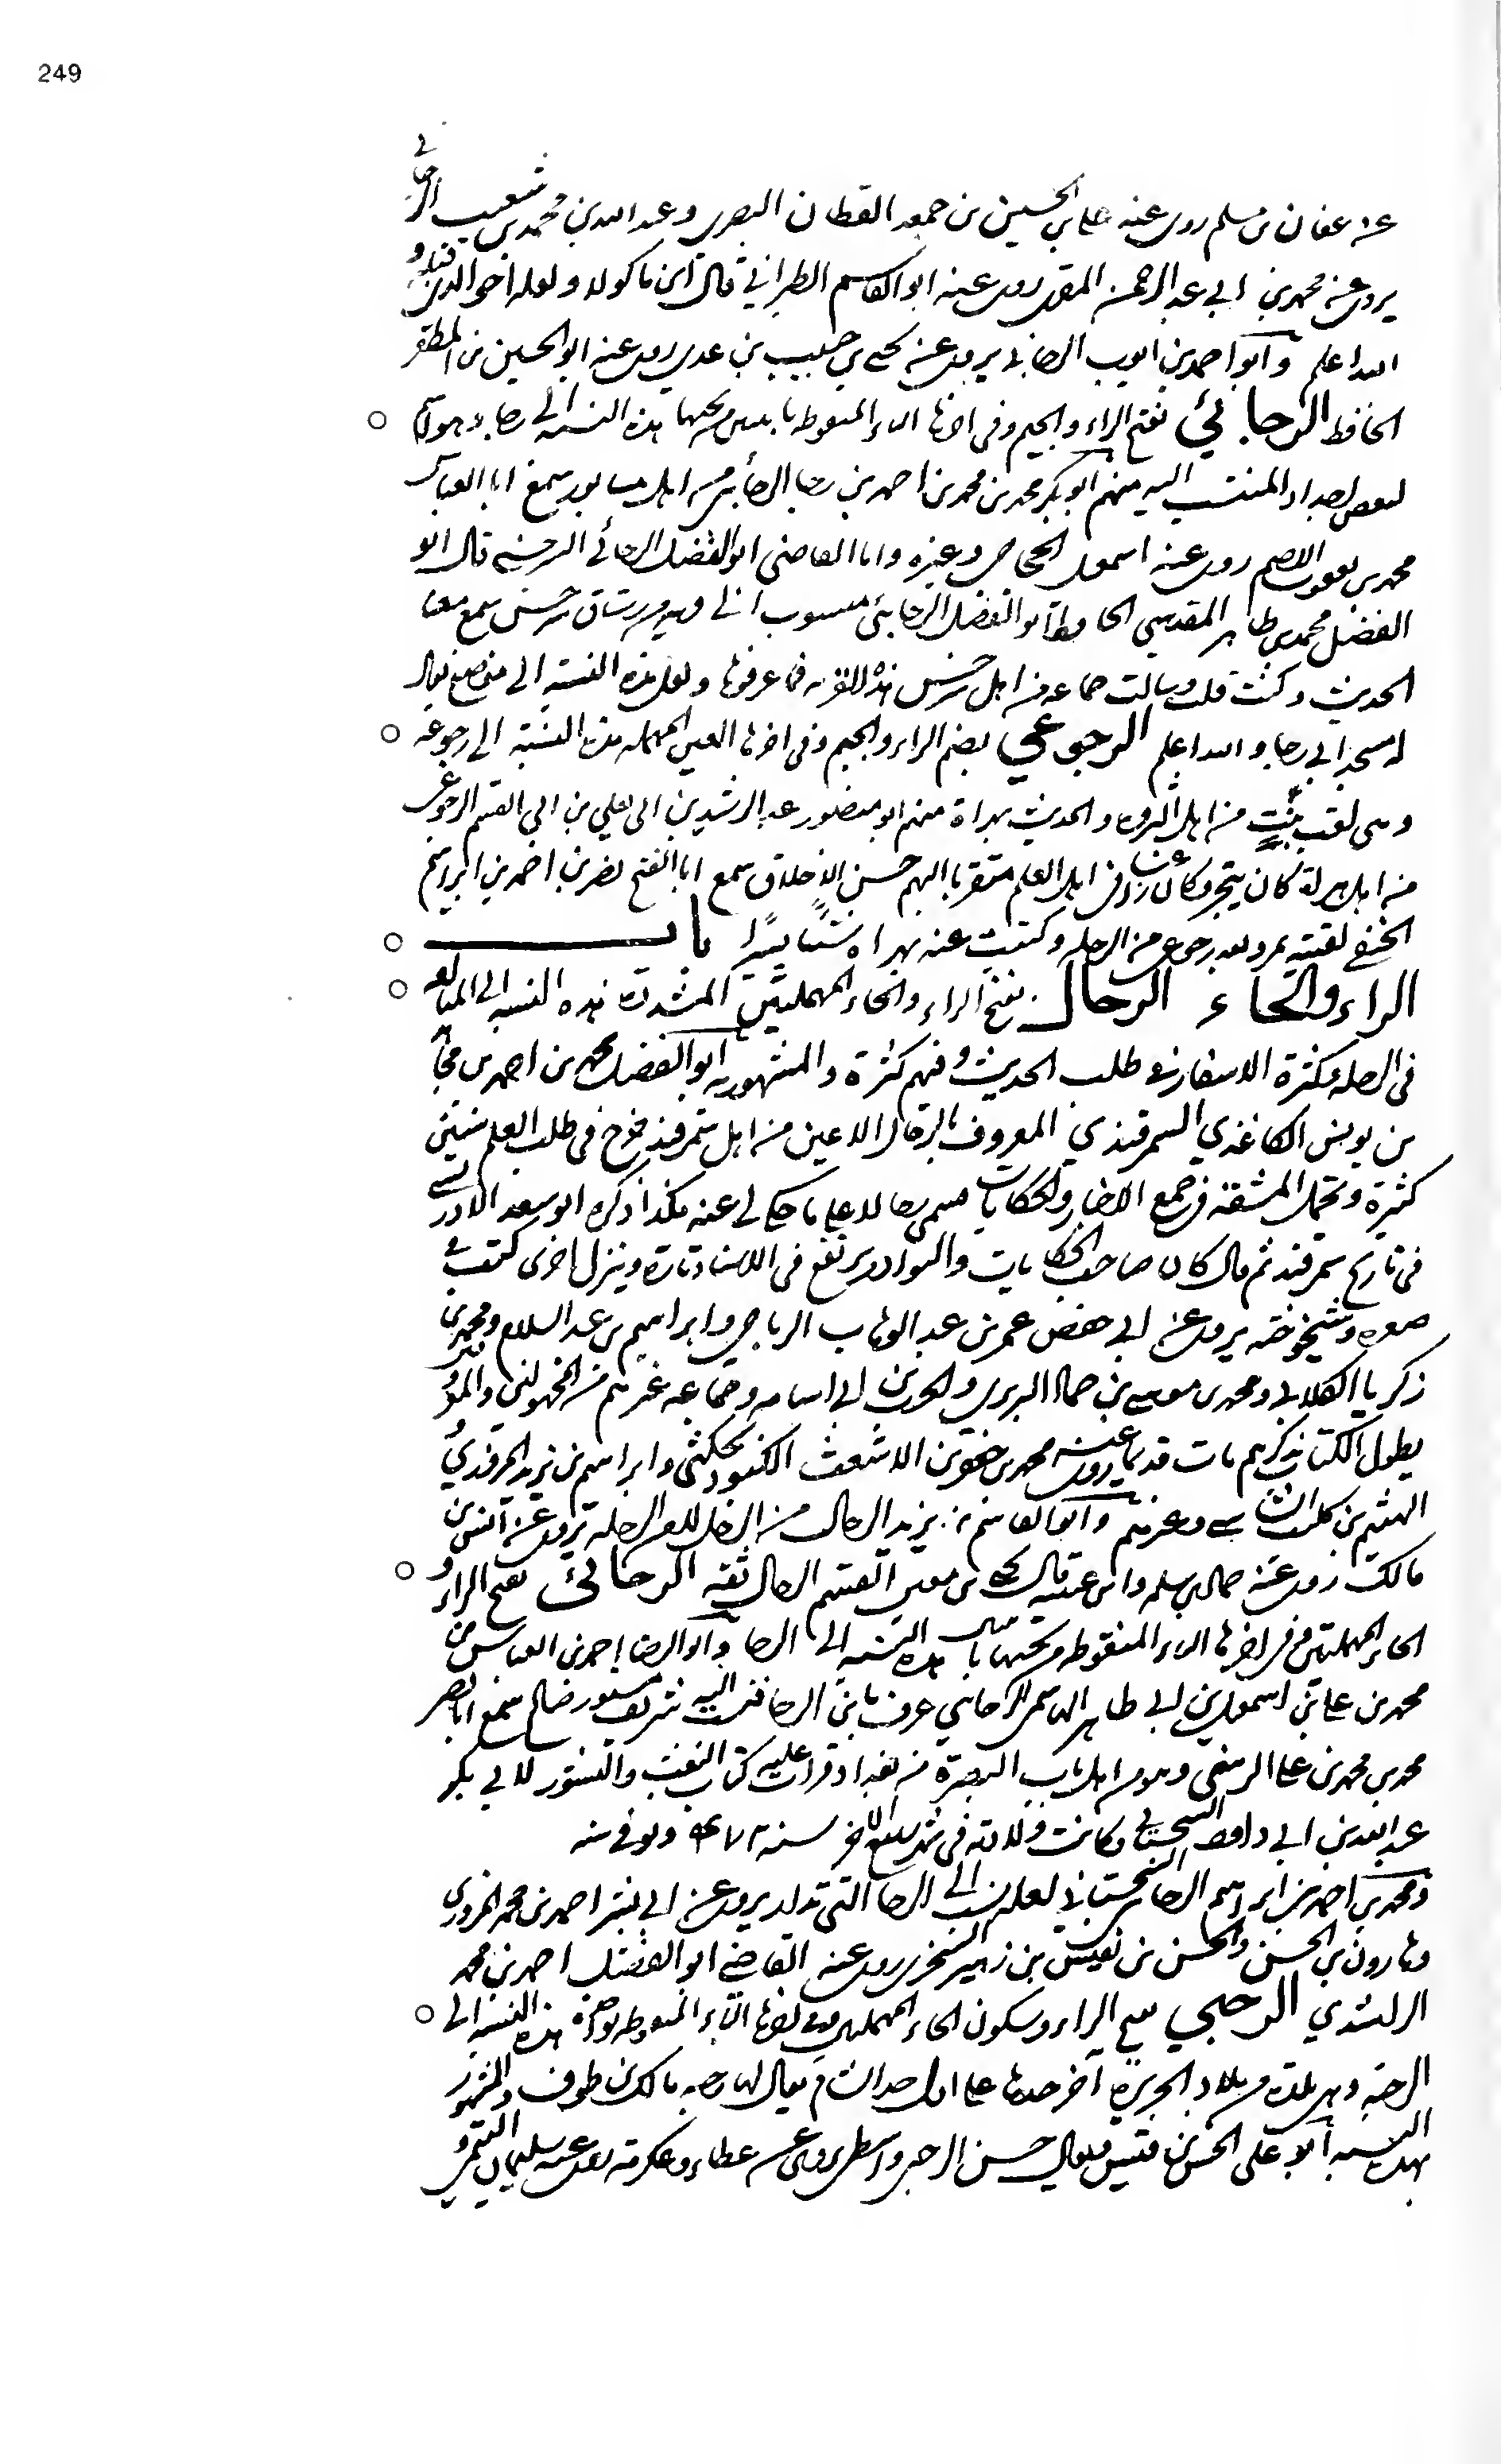 249
عن عفان بن مسلم روى عنه علي بن الحسين بن جمعه القطان البصري وعبد الله بن محمد بن شعيب الرجاني
يروي عن محمد بن ابي عبد الرحمن المقري روى عنه ابو القاسم الطبراني قال ابن ماكولا ولعله اخو الذي قبله و
الله اعلم وابو احمد بن ايوب الرجاني يروي عن يحيى بن حبيب بن عدي روى عنه ابو الحسين بن المظفر
الحافظ الرجائي بفتح الراء والجيم وفي اخرها الياء المنقوطه باثنتين من تحتها هذه النسبه الى رجا وهو اسم
لبعض اجداد المنتسب اليه منهم ابو بكر محمد بن محمد بن احمد بن رجا الرجائي من اهل نيسابور سمع ابا العباس
محمد بن يعقوب الاصم روى عنه اسمعيل الحجاجي وغيره واما القاضي ابو الفضل الرجائي السرخسي قال ابو
الفضل محمد بن طاهر المقدسي الحافظ ابو الفضل الرجائي منسوب الى قريه من رستاق سرخس سمع معنا
الحديث وكتب قلت وسالت جماعه من اهل سرخس هذه القريه فما عرفوها ولعل هذه النسبة الى موضع يقال
له مسجد ابي رجا والله اعلم الرجوعي بضم الراء والجيم وفي اخرها العين المهمله هذه النسبة الى رجوعه
وهي لقب بيت من اهل الثروه والحديث بهراة منهم ابو منصور عبد الرشيد بن ابي يعلي بن ابي القسم الرجوعي
من اهل هراة كان يتجر وكان راغبا في اهل العلم متقربا اليهم حسن الاخلاق سمع ابا الفتح نصر بن احمد بن ابراهيم
الحنفي لقيته بمرو بعد رجوعي من الرحله وكتبت عنه بهراة شيئا يسيرا باب
الراء والحاء الرحال بفتح الراء والحاء المهملتين المشددة هذه النسبه الى المبالغه
في الرحله وكثرة الاسفار في طلب الحديث وفيهم كثرة والمشهور به ابو الفضل محمد بن احمد بن
بن يونس الكاغدي السمرقندي المعروف بالرحال الاعين من اهل سمرقند خرج في طلب العلم سنين
كثيرة وتحمل المشقة في جمع الاخبار والحكايات فسمي رحالا على ما حكي لي عنه هكذا ذكره ابو سعد الادريسي
في تاريخ سمرقند ثم قال كان صاحب الحكايات والنوادر يرتفع في الاسناد تارة وينزل اخرى كتب في
صغره وشيخوخته يروي عن ابي حفص عمر بن عبد الوهاب الرياحي وابراهيم بن عبد السلام ومحمد بن
زكريا الغلابي ومحمد بن موسى بن حماد البربري والحرث بن ابي اسامه وجماعه غيرهم من المجهولين والمتروكين
يطول الكتاب بذكرهم مات قديما روى عنه محمد بن جعفر بن الاشعث الكبوذنجكثي وابراهيم بن
الهيثم بن كليب الشاشي وغيرهم وابو القاسم بن يزيد الرحال من الرحل للعلم الرحله يروي عن انس بن
مالك روى عنه حماد بن سلمه وابن عيينه قال يحيى بن معين القسم الرحال ثقه الرحائي بفتح الراء و
الحاء المهملتين وفي اخرها الياء المنقوطه من تحتها باثنتين هذه النسبه الى الرحا وابو الرضا احمد بن العباس بن
محمد بن علي بن اسمعيل بن ابي طاهر الهاشمي الرحائي عرف بابن الرحا فنسبت اليه شريف مستور صالح سمع ابا نصر
محمد بن محمد بن علي الزينبي وهو من اهل باب البصرة من بغداد قرات عليه كتاب البعث والنشور لابي بكر
عبد الله بن ابي داود السجستاني وكانت ولادته في شهر ربيع الاخر سنة ٤٧٢ وتوفي سنه
ومحمد بن احمد بن ابراهيم الرحائي السجستاني لعله نسب الى الرحا التي تدار يروي عن ابي بشر احمد بن محمد المروزي
وهارون بن الحسن والحسن بن نفيس بن زهير السجزي روى عنه القاضي ابو الفضل احمد بن محمد
الرشيدي الرحبي بفتح الراء وسكون الحاء المهملتين وفي اخرها الباء المنقوطه بواحدة هذه النسبه الى
الرحبه وهي بلدة من بلاد الجزيرة آخر حدها على اول حد الشام يقال لها رحبه مالك بن طوق والمشهور
بهذه النسبه ابو علي الحسين بن قيس ويقال حسن الرحبي واسطي يروي عن عطاء وعكرمة روى عنه سليمان التيمي و